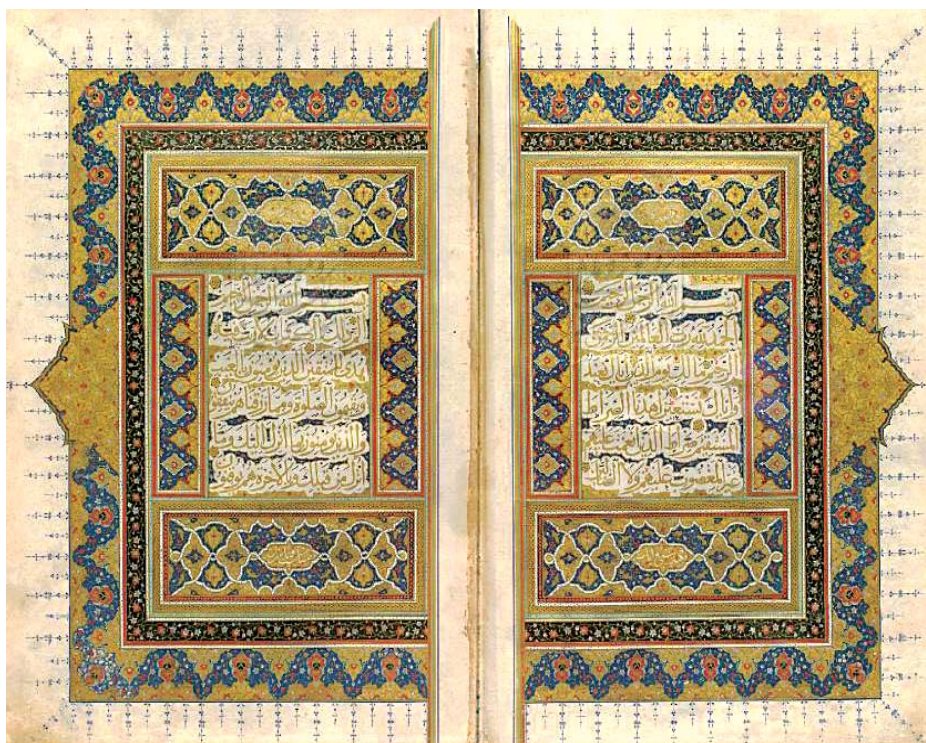 بسم الله الرحمن الرحيم
الحمد لله رب العالمين الرحمن
الرحيم مالك يوم الدين إياك نعبد
وإياك نستعين اهدنا الصراط
المستقيم صراط الذين أنعمت عليهم
غير المغضوب عليهم ولا الضالين
بسم الله الرحمن الرحيم
الم ذلك الكتاب لا ريب فيه
هدى للمتقين الذين يؤمنون بالغيب
ويقيمون الصلوة ومما رزقناهم ينفقون
والذين يؤمنون بما أنزل إليك وما
أنزل من قبلك وبالآخرة هم يوقنون